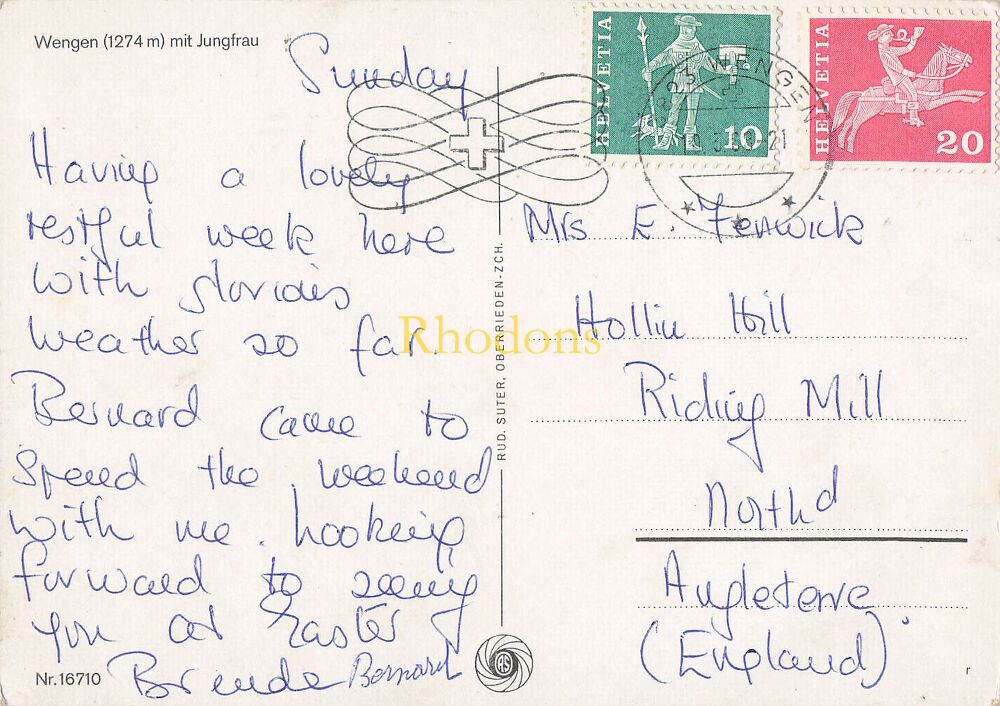 Wengen (1274 m) mit Jungfrau
Sunday
Having a lovely
restful week here
with glorious
weather so far.
Bernard came to
spend the weekend
with me. Looking
forward to seeing
you at Easter
Brenda Bernard
Nr. 16710
RUD. SUTER, OBERRIEDEN-ZCH.
HELVETIA
10
HELVETIA
20
WENGEN
21
Mrs E. Fenwick
Hollin Hill
Riding Mill
North^d
Angleterre
(England)
r
Rhodons